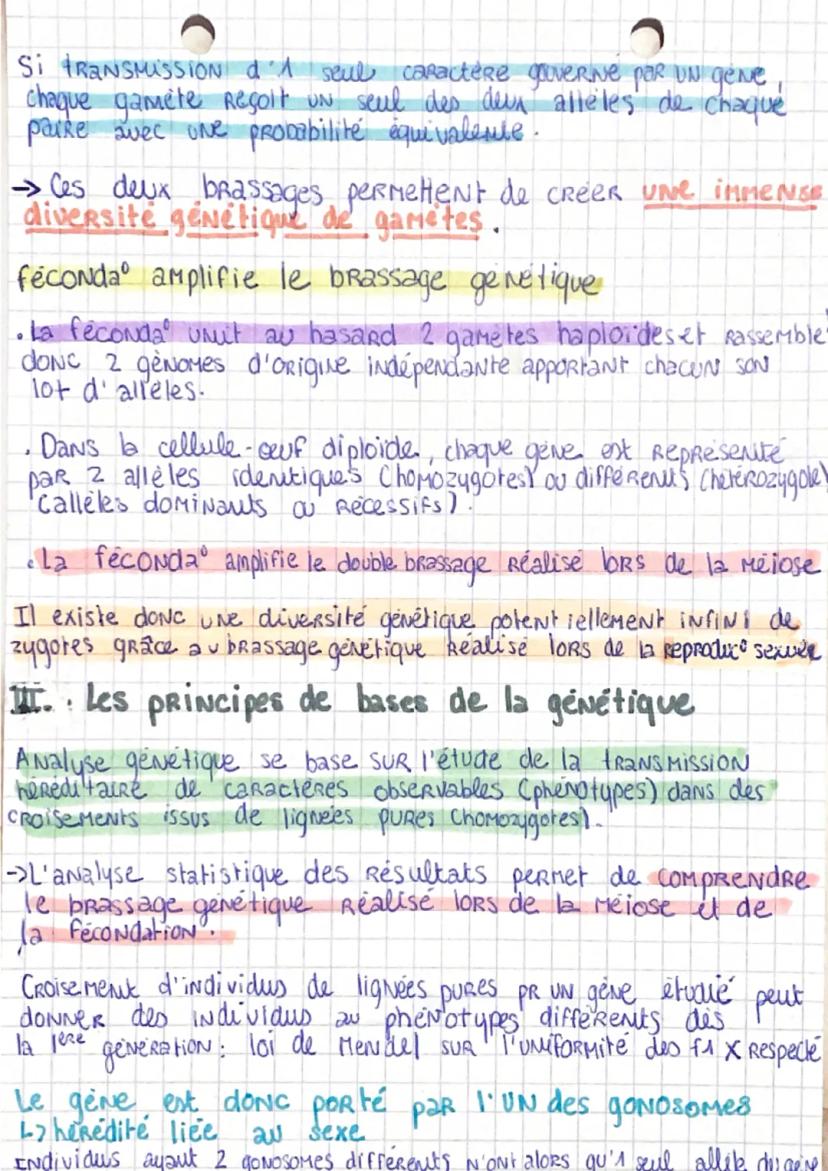 Si transmission d'1 seul caractère gouverné par un gène,
chaque gamète reçoit un seul des deux allèles de chaque
paire avec une probabilité équivalente.
→ Ces deux brassages permettent de créer une immense
diversité génétique de gamètes.
féconda° amplifie le brassage génétique
. La féconda° unit au hasard 2 gamètes haploïdes et rassemble
donc 2 génomes d'origine indépendante apportant chacun son
lot d'allèles.
. Dans la cellule-œuf diploïde, chaque gène est représenté
par 2 allèles identiques (homozygotes) ou différents (hétérozygote)
(allèles dominants ou récessifs).
. La féconda° amplifie le double brassage réalisé lors de la méiose
Il existe donc une diversité génétique potentiellement infini de
zygotes grâce au brassage génétique réalisé lors de la reproduc° sexuée
III. : Les principes de bases de la génétique
Analyse génétique se base sur l'étude de la transmission
héréditaire de caractères observables (phénotypes) dans des
croisements issus de lignées pures (homozygotes).
→ L'analyse statistique des résultats permet de comprendre
le brassage génétique réalisé lors de la méiose et de
la fécondation.
Croisement d'individus de lignées pures pr un gène étudié peut
donner des individus au phénotypes différents dès
la 1ère génération : loi de Mendel sur l'uniformité des f1 X respecté
Le gène est donc porté par l'un des gonosomes
↳ hérédité liée au sexe
Individus ayant 2 gonosomes différents n'ont alors qu'1 seul allèle du gène